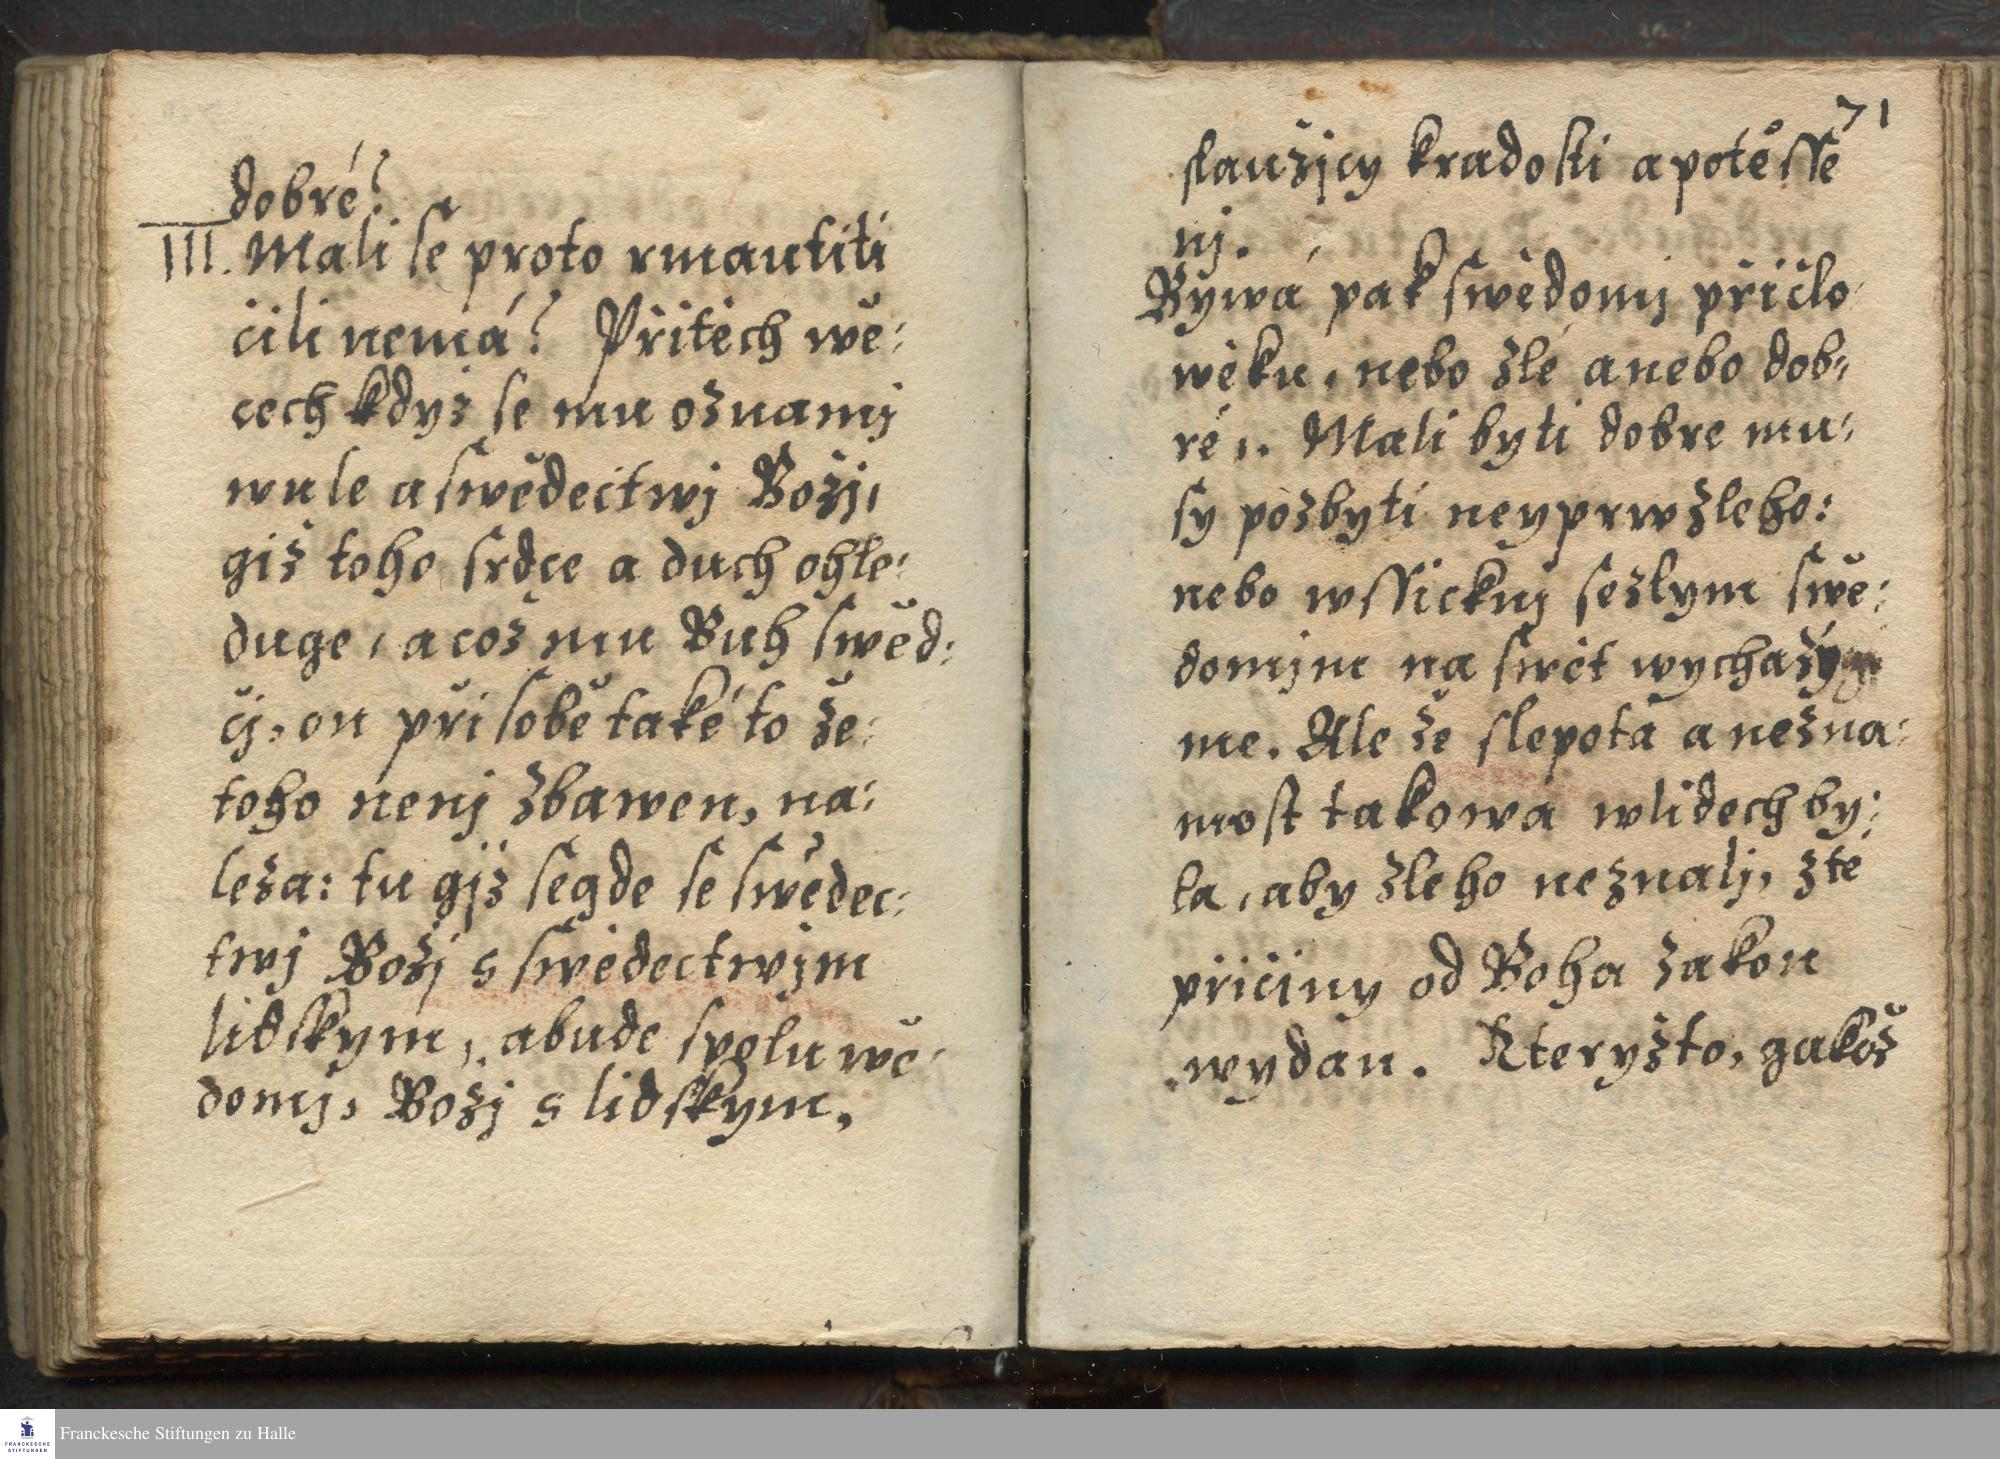 dobré?
III. Mali se proto rmautiti
čili nemá? Při těch wě:
cech kdyz se mu oznamj
wule a swědectwj Božj,
giž toho srdce a duch ohle:
duge, a což mu Buh swěd:
čj, on při sobě také to že:
toho nenj zbawen, na:
leza: tu giž segde se swědec:
twj Božj s swědectwjm
lidskym, a bude spolu wě:
domj, Božj s lidskym,
71
slaužjcy k radosti a potěsse
nj.
Bywá pak swědomj při člo
wěku, nebo zlé a nebo dob:
ré,. Mali byti dobre mu:
sy pozbyti neyprw zleho:
nebo wssickni se zlym swě:
domjm na swět wychazý
me. Ale že slepota a nezna:
most takowá w lidech by:
la, aby zleho neznalj, z te
přičiny od Boha zakon
wydán. Kteryžto, gakož
Franckesche Stiftungen zu Halle
FRANCKESCHE
STIFTUNGEN